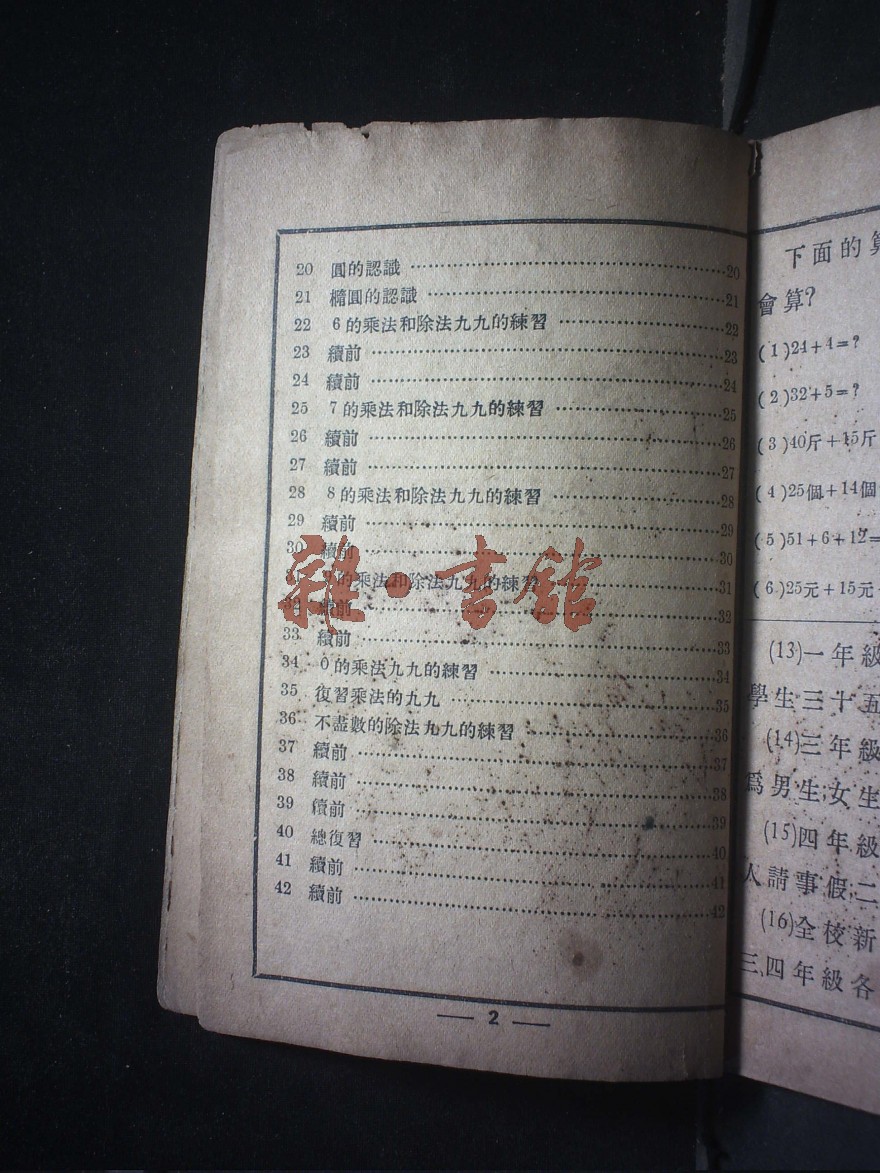 20 圓的認識 20
21 橢圓的認識 21
22 6的乘法和除法九九的練習 22
23 續前 23
24 續前 24
25 7的乘法和除法九九的練習 25
26 續前 26
27 續前 27
28 8的乘法和除法九九的練習 28
29 續前 29
30 續前 30
的乘法和除法九九的練習 31
32 續前 32
33 續前 33
34 0的乘法九九的練習 34
35 復習乘法的九九 35
36 不盡數的除法九九的練習 36
37 續前 37
38 續前 38
39 續前 39
40 總復習 40
41 續前 41
42 續前 42
— 2 —
雜·書館
下面的算
會算?
(1)24+4=?
(2)32+5=?
(3)40斤+15斤
(4)25個+14個
(5)51+6+12=
(6)25元+15元
(13)一年級
學生三十五
(14)三年級
爲男生,女生
(15)四年級
人請事假,二
(16)全校新
三,四年級各